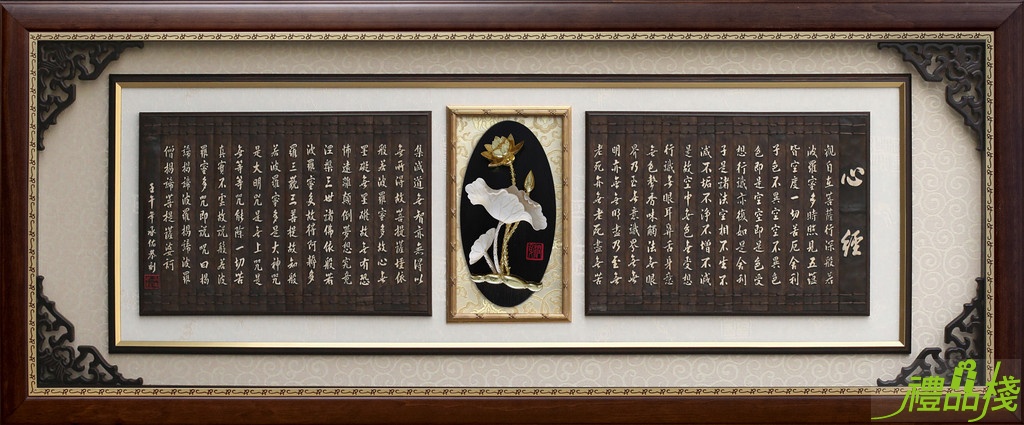 心經
觀自在菩薩行深般若
波羅蜜多時照見五蘊
皆空度一切苦厄舍利
子色不異空空不異色
色即是空空即是色受
想行識亦復如是舍利
子是諸法空相不生不
滅不垢不淨不增不減
是故空中無色無受想
行識無眼耳鼻舌身意
無色聲香味觸法無眼
界乃至無意識界無無
明亦無無明盡乃至無
老死亦無老死盡無苦
集滅道無智亦無得以
無所得故菩提薩埵依
般若波羅蜜多故心無
罣礙無罣礙故無有恐
怖遠離顛倒夢想究竟
涅槃三世諸佛依般若
波羅蜜多故得阿耨多
羅三藐三菩提故知般
若波羅蜜多是大神咒
是大明咒是無上咒是
無等等咒能除一切苦
真實不虛故說般若波
羅蜜多咒即說咒曰揭
諦揭諦波羅揭諦波羅
僧揭諦菩提薩婆訶
禮品棧